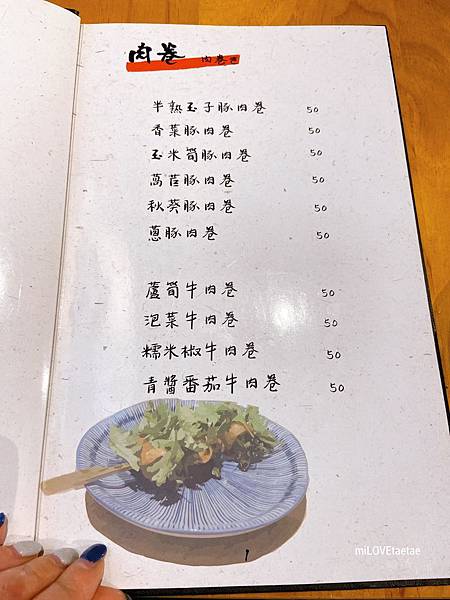 肉卷 肉卷
半熟玉子豚肉卷 50
香菜豚肉卷 50
玉米筍豚肉卷 50
萵苣豚肉卷 50
秋葵豚肉卷 50
蔥豚肉卷 50
蘆筍牛肉卷 50
泡菜牛肉卷 50
糯米椒牛肉卷 50
青醬番茄牛肉卷 50
miLOVEtaetae